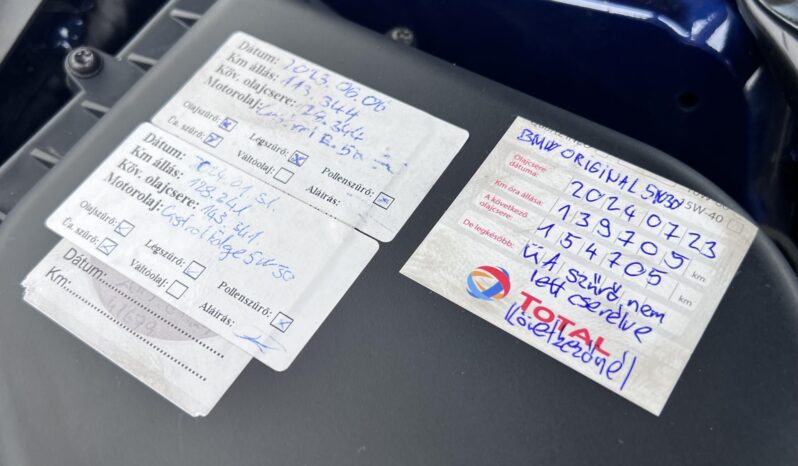 Dátum: 2023.06.06
Km állás: 113.344
Köv. olajcsere: 128.344
Motorolaj:
Olajszűrő:
Légszűrő:
Pollenszűrő:
Üa. szűrő:
Váltóolaj:
Aláírás:
Dátum: 24.01.31.
Km állás: 128.341
Köv. olajcsere: 143.341
Motorolaj: Castrol Edge 5w30
Olajszűrő:
Légszűrő:
Pollenszűrő:
Üa. szűrő:
Váltóolaj:
Aláírás:
Dátum:
Km:
5W-40
BMW ORIGINAL 5W30
Olajcsere dátuma: 20240723
Km óra állása: 139705 km
A következő olajcsere: 154705 km
De legkésőbb:
ÜA szűrő nem
lett cserélve
TOTAL
Következőnél